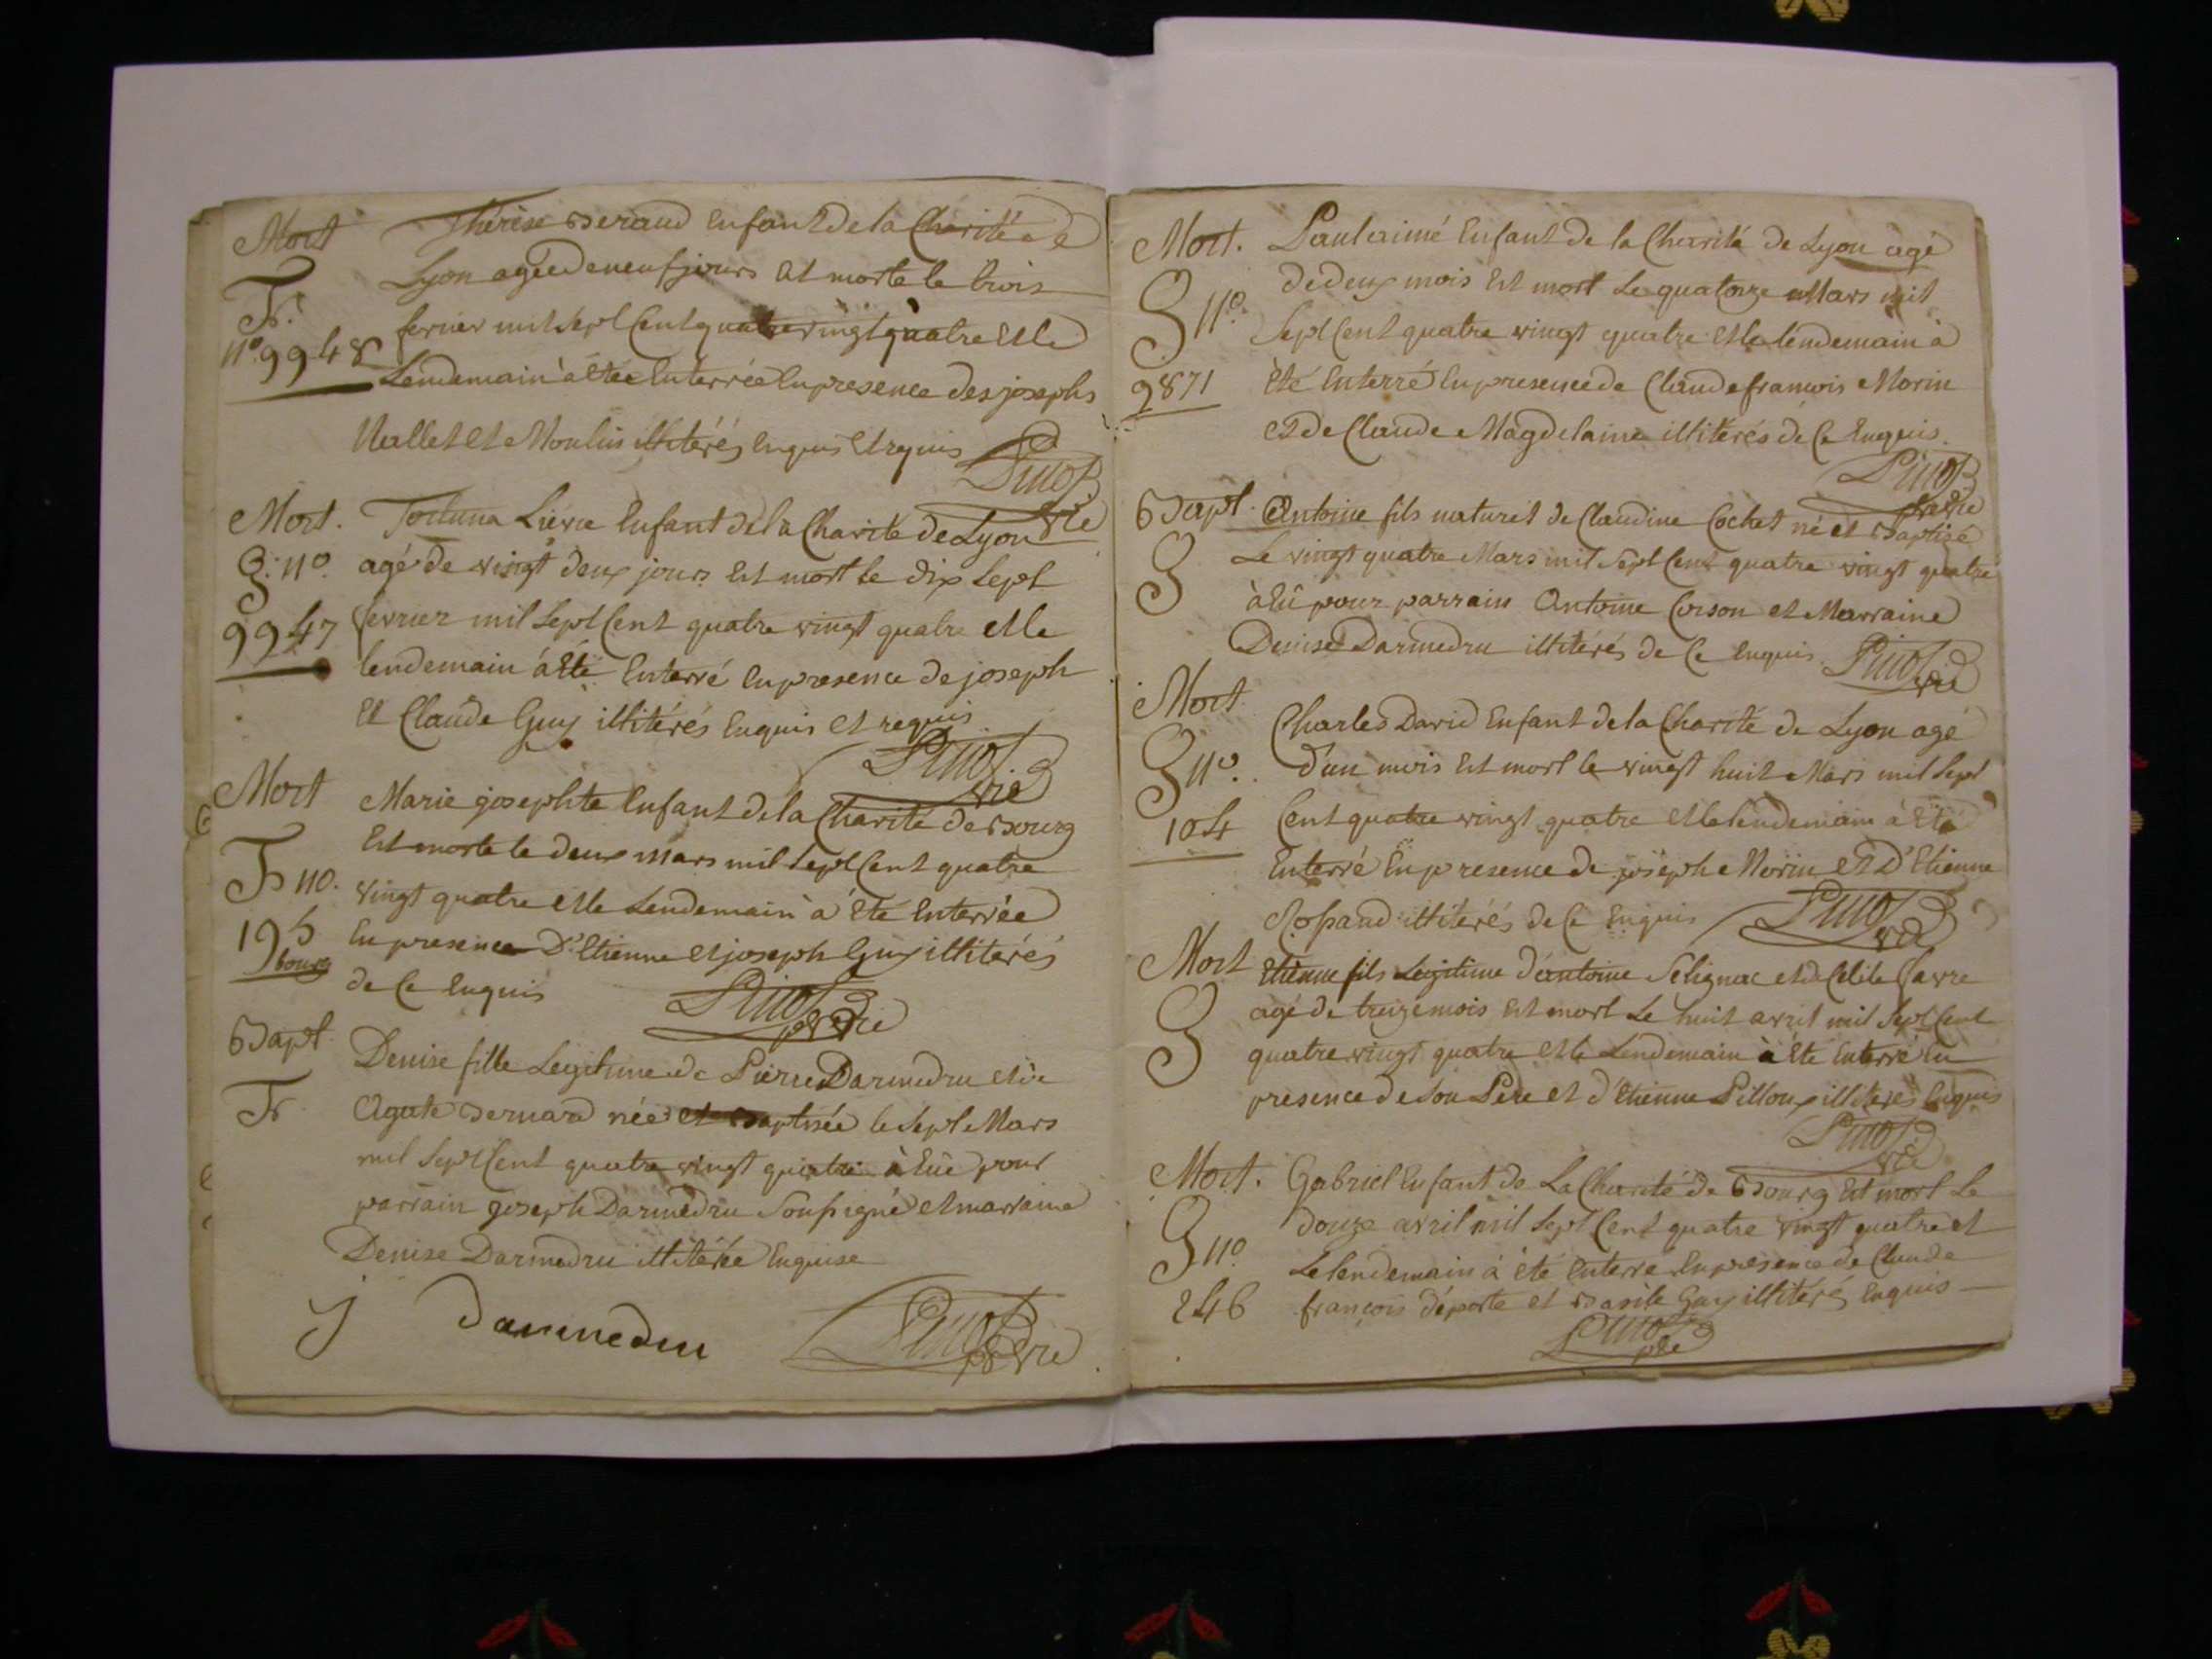 Mort
F.
n.º 9948
Thérèse Beraud Enfant de la Charité de
Lyon agée de neuf jours est morte le trois
fevrier mil sept Cent quatre vingt quatre et le
Lendemain à étée Enterrée En presence des josephs
Mallet et Moulin illitérés Enquis et requis
Mort.
G. n.º
9947
Fortuna Liévre Enfant de la Charité de Lyon
agé de vingt deux jours est mort le dix sept
fevrier mil sept Cent quatre vingt quatre et le
lendemain à été Enterré En presence de joseph
et Claude Guy illitérés Enquis et requis
Mort
F no.
195
bourg
Marie josephte Enfant de la Charité de Bourg
Est morte le deux Mars mil sept Cent quatre
vingt quatre et le Lendemain à été Enterrée
En presence D'Etienne et joseph Guy illitérés
de Ce Enquis
Bapt.
F
Denise fille Legitime de Pierre Darmedru et de
Agate Bernard née et Baptisée le sept Mars
mil sept Cent quatre vingt quatre à Eüe pour
parrain joseph Darmedru Soussigné et marraine
Denise Darmedru illitérée Enquise
J Darmedru
Mort.
G n.º
9871
Paul aimé Enfant de la Charité de Lyon agé
de deux mois Est mort Le quatorze Mars mil
sept Cent quatre vingt quatre et le lendemain à
été Enterré En presence de Claude francois Morin
et de Claude Magdelaine illitérés de Ce Enquis.
Bapt.
G
Antoine fils naturel de Claudine Cochet né et Baptisé
Le vingt quatre Mars mil sept Cent quatre vingt quatre
à Eû pour parrain Antoine Corson et Marraine
Denise Darmedru illitérés de Ce Enquis
Mort
G n.º
104
Charles David Enfant de la Charité de Lyon agé
d'un mois Est mort le vingt huit Mars mil sept
Cent quatre vingt quatre et le lendemain à été
Enterré En presence de joseph Morin et D'Etienne
illitérés de Ce Enquis
Mort
G
Etienne fils Legitime d'antoine Selignac et de Cecile favre
agé de treize mois Est mort Le huit avril mil sept Cent
quatre vingt quatre et le Lendemain à été Enterré En
presence de Son Pere et d'Etienne Pilloux illiterés Enquis
Mort.
G n.º
246
Gabriel Enfant de La Charité de Bourg Est mort Le
douze avril mil sept Cent quatre vingt quatre et
Le lendemain à été Enterré En presence de Claude
françois déporte et Basile Guy illitérés Enquis